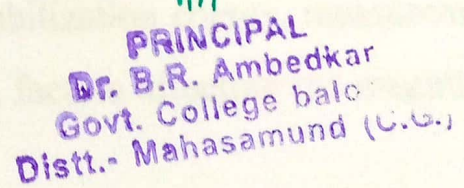 PRINCIPAL
Dr. B.R. Ambedkar
Govt. College balo
Distt.- Mahasamund (C.G.)